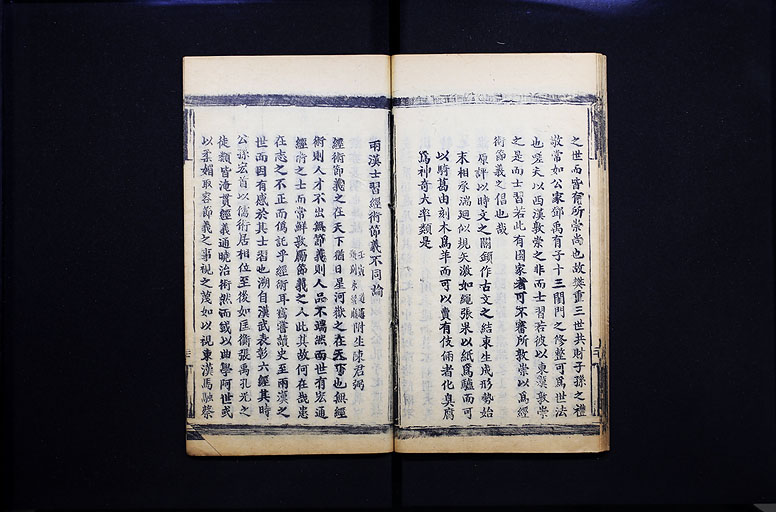 之世而皆有所崇尚也故樊重三世共財子孫之禮
敬常如公家鄧禹有子十三閨門之修整可為世法
也嗟夫以西漢敦崇之非而士習若彼以東漢敦崇
之是而士習若此有國家者可不審所敦崇以為經
術節義之倡也哉
原評以時文之關鎖作古文之結束生成形勢始
末相承湍迴似規矢激如繩張米以紙為驢而可
以騎葛由刻木為羊而可以賣有伎倆者化臭腐
為神奇大率類是
兩漢士習經術節義不同論
附生陳君弼
經術節義之在天下猶日星河嶽之在天下也無經
術則人才不出無節義則人品不端然而世有宏通
經術之士而常鮮敦厲節義之人此其故何在哉患
在志之不正而偽託乎經術耳寫嘗讀史至兩漢之
世而因有感於其士習也溯自漢武表彰六經其時
公孫宏首以儒術居相位至後如匡衡張禹孔光之
徒類皆淹貫經義通曉治術然而或以曲學阿世或
以柔媚取容節義之事視之蔑如以視東漢馬融蔡